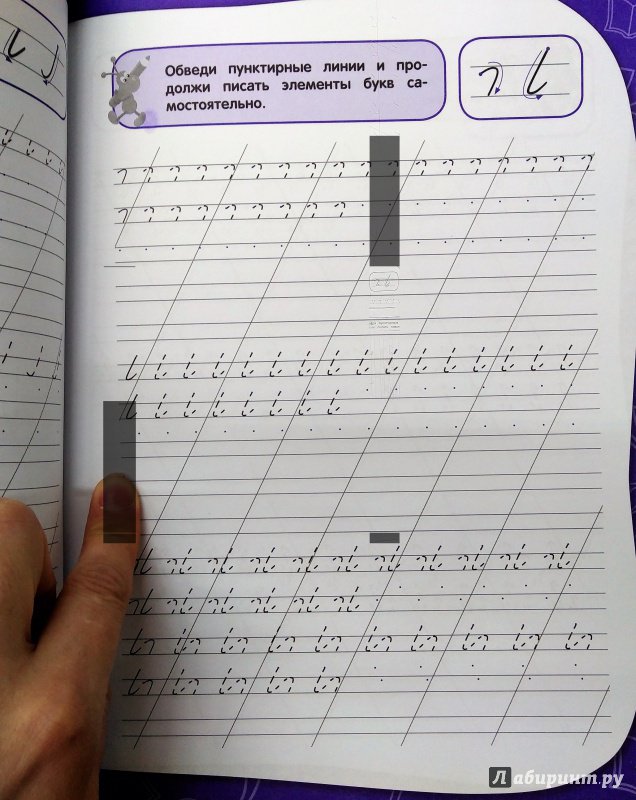 Обведи пунктирные линии и про-
должи писать элементы букв са-
мостоятельно.
Лабиринт.ру